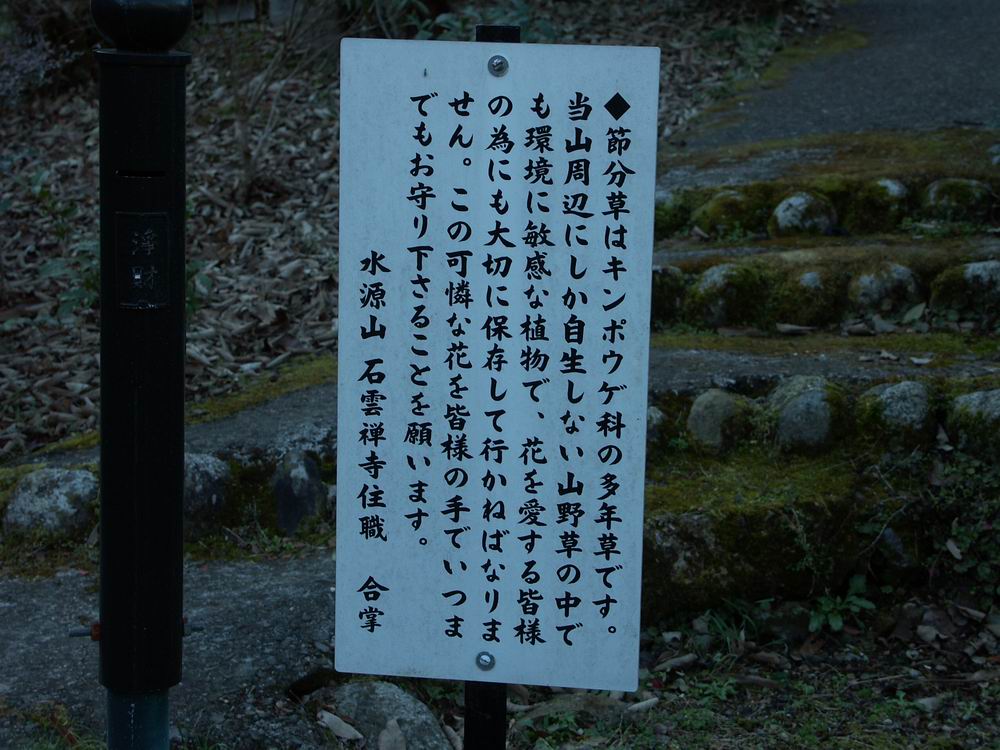 ◆節分草はキンポウゲ科の多年草です。
当山周辺にしか自生しない山野草の中で
も環境に敏感な植物で、花を愛する皆様
の為にも大切に保存して行かねばなりま
せん。この可憐な花を皆様の手でいつま
でもお守り下さることを願います。
水源山 石雲禅寺住職 合掌
浄財